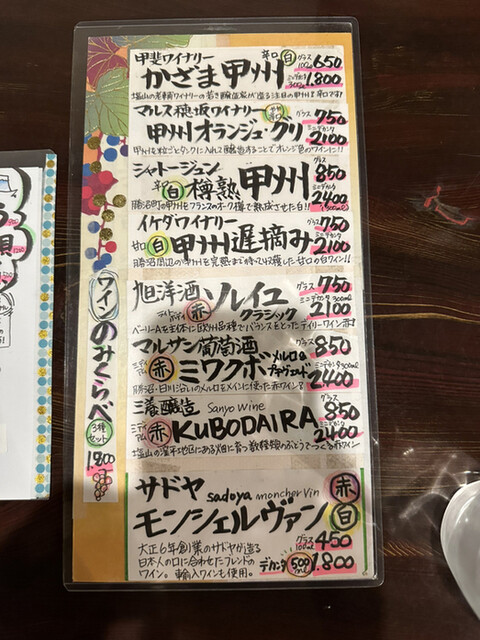 甲斐ワイナリー 辛口 白 グラス100ml 650
かざま甲州 ミニデカンタ300ml 1.800
塩山の老舗ワイナリーの若き醸造家が造る注目の甲州辛口です
マルス穂坂ワイナリー グラス 750
甲州オランジュ・グリ ミニデカンタ 2100
甲州を粒ごとタンクに入れて醸造することでオレンジ色のワインに!!
シャトージュン グラス 850
辛口 白 樽熟 甲州 ミニデカンタ 2400
勝沼町の甲州をフランスのオーク樽で熟成させた白!!
イケダワイナリー グラス 750
甘口 白 甲州遅摘み ミニデカンタ 2100
勝沼周辺の甲州を完熟まで待って収穫した甘口の白ワイン!!
旭洋酒 ソレイユ グラス 750
赤 クラシック ミニデカンタ300ml 2100
ベーリーAを主体に欧州品種でバランスをとったデイリーワイン
マルサン葡萄酒 グラス 850
ミディアム 赤 ミワクボ メルロ& ミニデカンタ 2400
勝沼・日川沿いのメルロをメインに使った赤ワイン
三養醸造 Sanyo Wine グラス 850
ミディアム 赤 KUBODAIRA ミニデカンタ 2400
サドヤ sadoya moncher vin 赤
モンシェルヴァン 白
大正6年創業のサドヤが造る グラス100ml 450
日本人の口に合わせたブレンドの
ワイン。輸入ワインも使用。 デカンタ 500ml 1.800
ワインのみくらべ
3種セット
1900